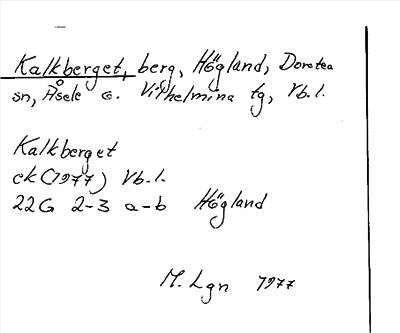 Kalkberget, berg, Högland, Dorotea
sn, Åsele o. Vilhelmina tg, Vb. l.
Kalkberget
ek (1977) Vb. l.
22G 2-3 a-b Högland
M. Lgn 1977